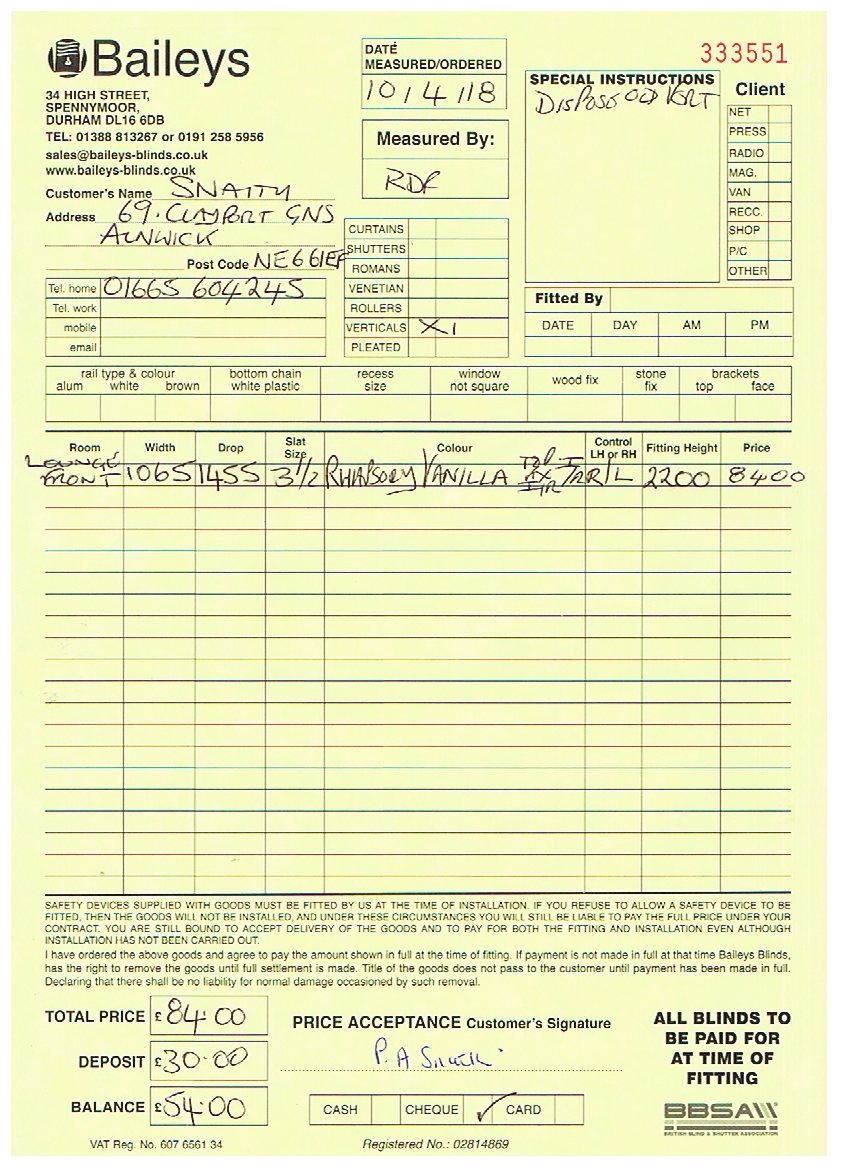 Baileys
34 HIGH STREET,
SPENNYMOOR,
DURHAM DL16 6DB
TEL: 01388 813267 or 0191 258 5956
sales@baileys-blinds.co.uk
www.baileys-blinds.co.uk
DATE
MEASURED/ORDERED
10/4/18
Measured By:
RDF
333551
SPECIAL INSTRUCTIONS
DISPOSE OLD VERT
Client
NET
PRESS
RADIO
MAG.
VAN
RECC.
SHOP
P/C
OTHER
Customer's Name SNAITH
Address 69. CLAYPORT GNS
ALNWICK
Post Code NE661EF
Tel. home 01665 604245
Tel. work
mobile
email
CURTAINS
SHUTTERS
ROMANS
VENETIAN
ROLLERS
VERTICALS X 1
PLEATED
Fitted By
DATE DAY AM PM
rail type & colour bottom chain recess window wood fix stone brackets
alum white brown white plastic size not square fix top face
Room Width Drop Slat Size Colour Control LH or RH Fitting Height Price
LOUNGE
FRONT 1065 1455 3 1/2 RHAPSODY VANILLA R/L 2200 8400
SAFETY DEVICES SUPPLIED WITH GOODS MUST BE FITTED BY US AT THE TIME OF INSTALLATION. IF YOU REFUSE TO ALLOW A SAFETY DEVICE TO BE
FITTED, THEN THE GOODS WILL NOT BE INSTALLED, AND UNDER THESE CIRCUMSTANCES YOU WILL STILL BE LIABLE TO PAY THE FULL PRICE UNDER YOUR
CONTRACT. YOU ARE STILL BOUND TO ACCEPT DELIVERY OF THE GOODS AND TO PAY FOR BOTH THE FITTING AND INSTALLATION EVEN ALTHOUGH
INSTALLATION HAS NOT BEEN CARRIED OUT.
I have ordered the above goods and agree to pay the amount shown in full at the time of fitting. If payment is not made in full at that time Baileys Blinds,
has the right to remove the goods until full settlement is made. Title of the goods does not pass to the customer until payment has been made in full.
Declaring that there shall be no liability for normal damage occasioned by such removal.
TOTAL PRICE £84.00
DEPOSIT £30.00
BALANCE £54.00
PRICE ACCEPTANCE Customer's Signature
P.A
CASH CHEQUE ✓ CARD
ALL BLINDS TO
BE PAID FOR
AT TIME OF
FITTING
BBSA
BRITISH BLIND & SHUTTER ASSOCIATION
VAT Reg. No. 607 6561 34
Registered No.: 02814869